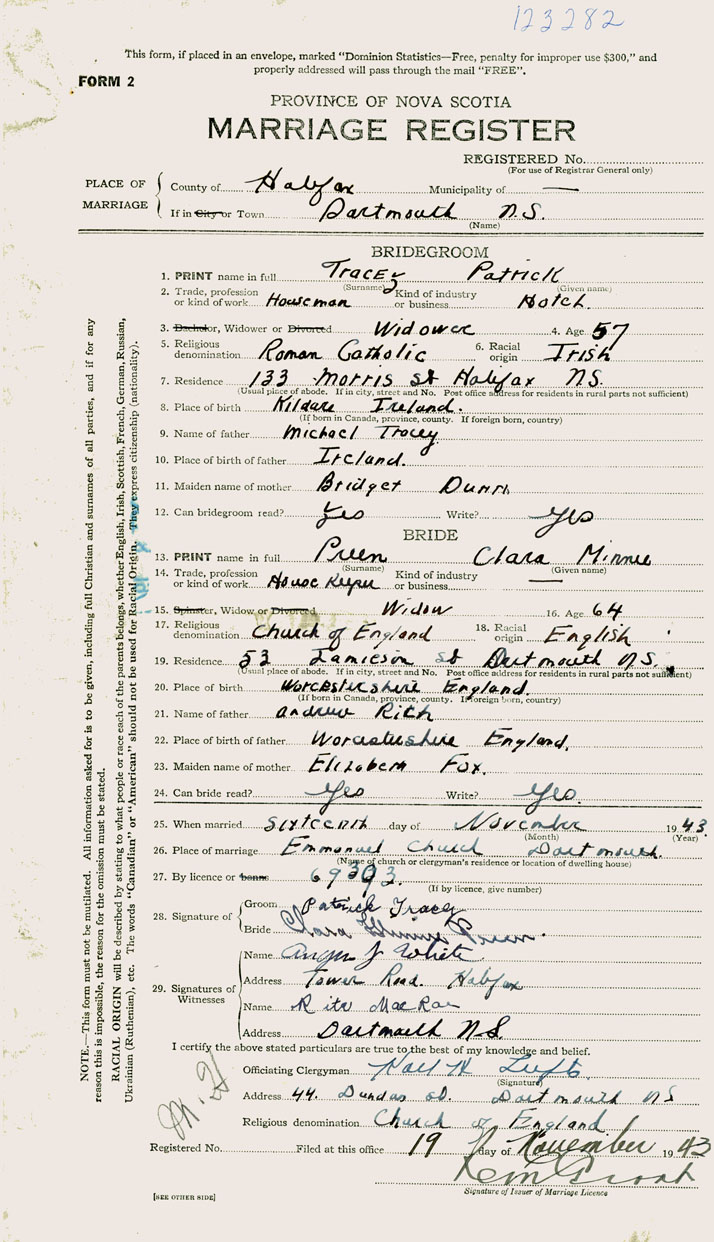 123282
This form, if placed in an envelope, marked "Dominion Statistics—Free, penalty for improper use $300," and
properly addressed will pass through the mail "FREE".
FORM 2
PROVINCE OF NOVA SCOTIA
MARRIAGE REGISTER
REGISTERED No.
(For use of Registrar General only)
PLACE OF MARRIAGE
County of Halifax Municipality of —
If in City or Town Dartmouth N.S.
(Name)
BRIDEGROOM
1. PRINT name in full Tracey Patrick
(Surname) (Given name)
2. Trade, profession or kind of work Houseman Kind of industry or business Hotel.
3. Bachelor, Widower or Divorced Widower 4. Age 57
5. Religious denomination Roman Catholic 6. Racial origin Irish
7. Residence 133 Morris St Halifax N.S.
(Usual place of abode. If in city, street and No. Post office address for residents in rural parts not sufficient)
8. Place of birth Kildare Ireland.
(If born in Canada, province, county. If foreign born, country)
9. Name of father Michael Tracey
10. Place of birth of father Ireland.
11. Maiden name of mother Bridget Dunn
12. Can bridegroom read? Yes Write? Yes
BRIDE
13. PRINT name in full Preen Clara Minnie
(Surname) (Given name)
14. Trade, profession or kind of work House Keeper Kind of industry or business —
15. Spinster, Widow or Divorced Widow 16. Age 64
17. Religious denomination Church of England 18. Racial origin English
19. Residence 53 Jamieson St Dartmouth N.S.
(Usual place of abode. If in city, street and No. Post office address for residents in rural parts not sufficient)
20. Place of birth Worcestershire England.
(If born in Canada, province, county. If foreign born, country)
21. Name of father Andrew Rich
22. Place of birth of father Worcestershire England.
23. Maiden name of mother Elizabeth Fox.
24. Can bride read? Yes Write? Yes.
25. When married Sixteenth day of November 1943.
(Month) (Year)
26. Place of marriage Emmanuel Church Dartmouth.
(Name of church or clergyman's residence or location of dwelling house)
27. By licence or banns 69393.
(If by licence, give number)
28. Signature of
Groom Patrick Tracey
Bride Clara Minnie Preen.
29. Signatures of Witnesses
Name Angus J White
Address Tower Road. Halifax
Name Rita MacRae
Address Dartmouth N.S.
I certify the above stated particulars are true to the best of my knowledge and belief.
Officiating Clergyman
(Signature)
Address 44. Dundas St. Dartmouth NS
Religious denomination Church of England
Registered No. Filed at this office 19 day of November 1943
Signature of Issuer of Marriage Licence
[SEE OTHER SIDE]
NOTE.—This form must not be mutilated. All information asked for is to be given, including full Christian and surnames of all parties, and if for any
reason this is impossible, the reason for the omission must be stated.
RACIAL ORIGIN will be described by stating to what people or race each of the parents belongs, whether English, Irish, Scottish, French, German, Russian,
Ukrainian (Ruthenian), etc. The words "Canadian" or "American" should not be used for Racial Origin. They express citizenship (nationality).